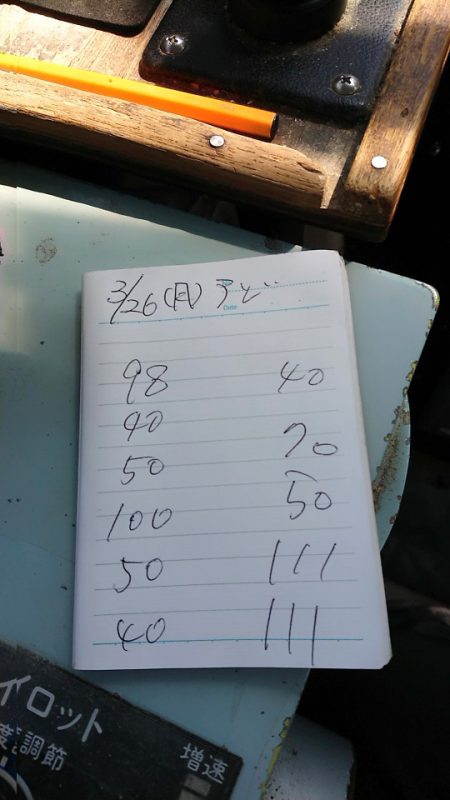 3/26(月)
Date
98
40
50
100
50
40
40
70
50
111
111
イロット
度調節
増速